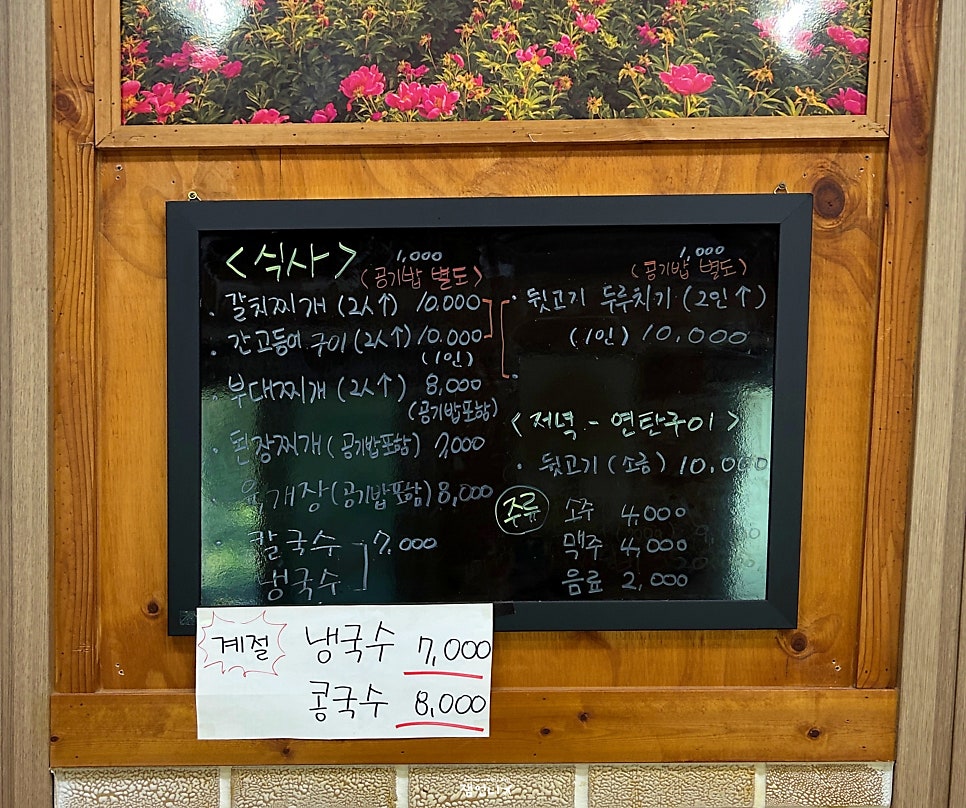 <식사>
1,000
(공기밥 별도)
· 갈치찌개 (2人↑) 10,000
· 간고등어 구이 (2人↑) 10,000
(1인)
· 부대찌개 (2人↑) 8,000
(공기밥포함)
· 된장찌개 (공기밥포함) 7,000
육개장 (공기밥포함) 8,000
· 칼국수 7,000
냉국수
1,000
(공기밥 별도)
· 뒷고기 두루치기 (2인↑)
(1인) 10,000
<저녁 - 연탄구이>
· 뒷고기 (소금) 10,000
주류 소주 4,000
맥주 4,000
음료 2,000
계절 냉국수 7,000
콩국수 8,000